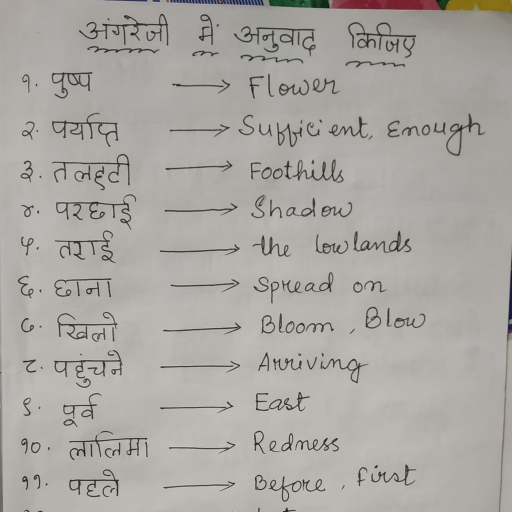 अंगरेजी में अनुवाद किजिए
१. पुष्प → Flower
२. पर्याप्त → Sufficient, Enough
३. तलहटी → Foothills
४. परछाई → Shadow
५. तराई → the lowlands
६. छाना → Spread on
७. खिलो → Bloom, Blow
८. पहुंचने → Arriving
९. पूर्व → East
१०. लालिमा → Redness
११. पहले → Before, first